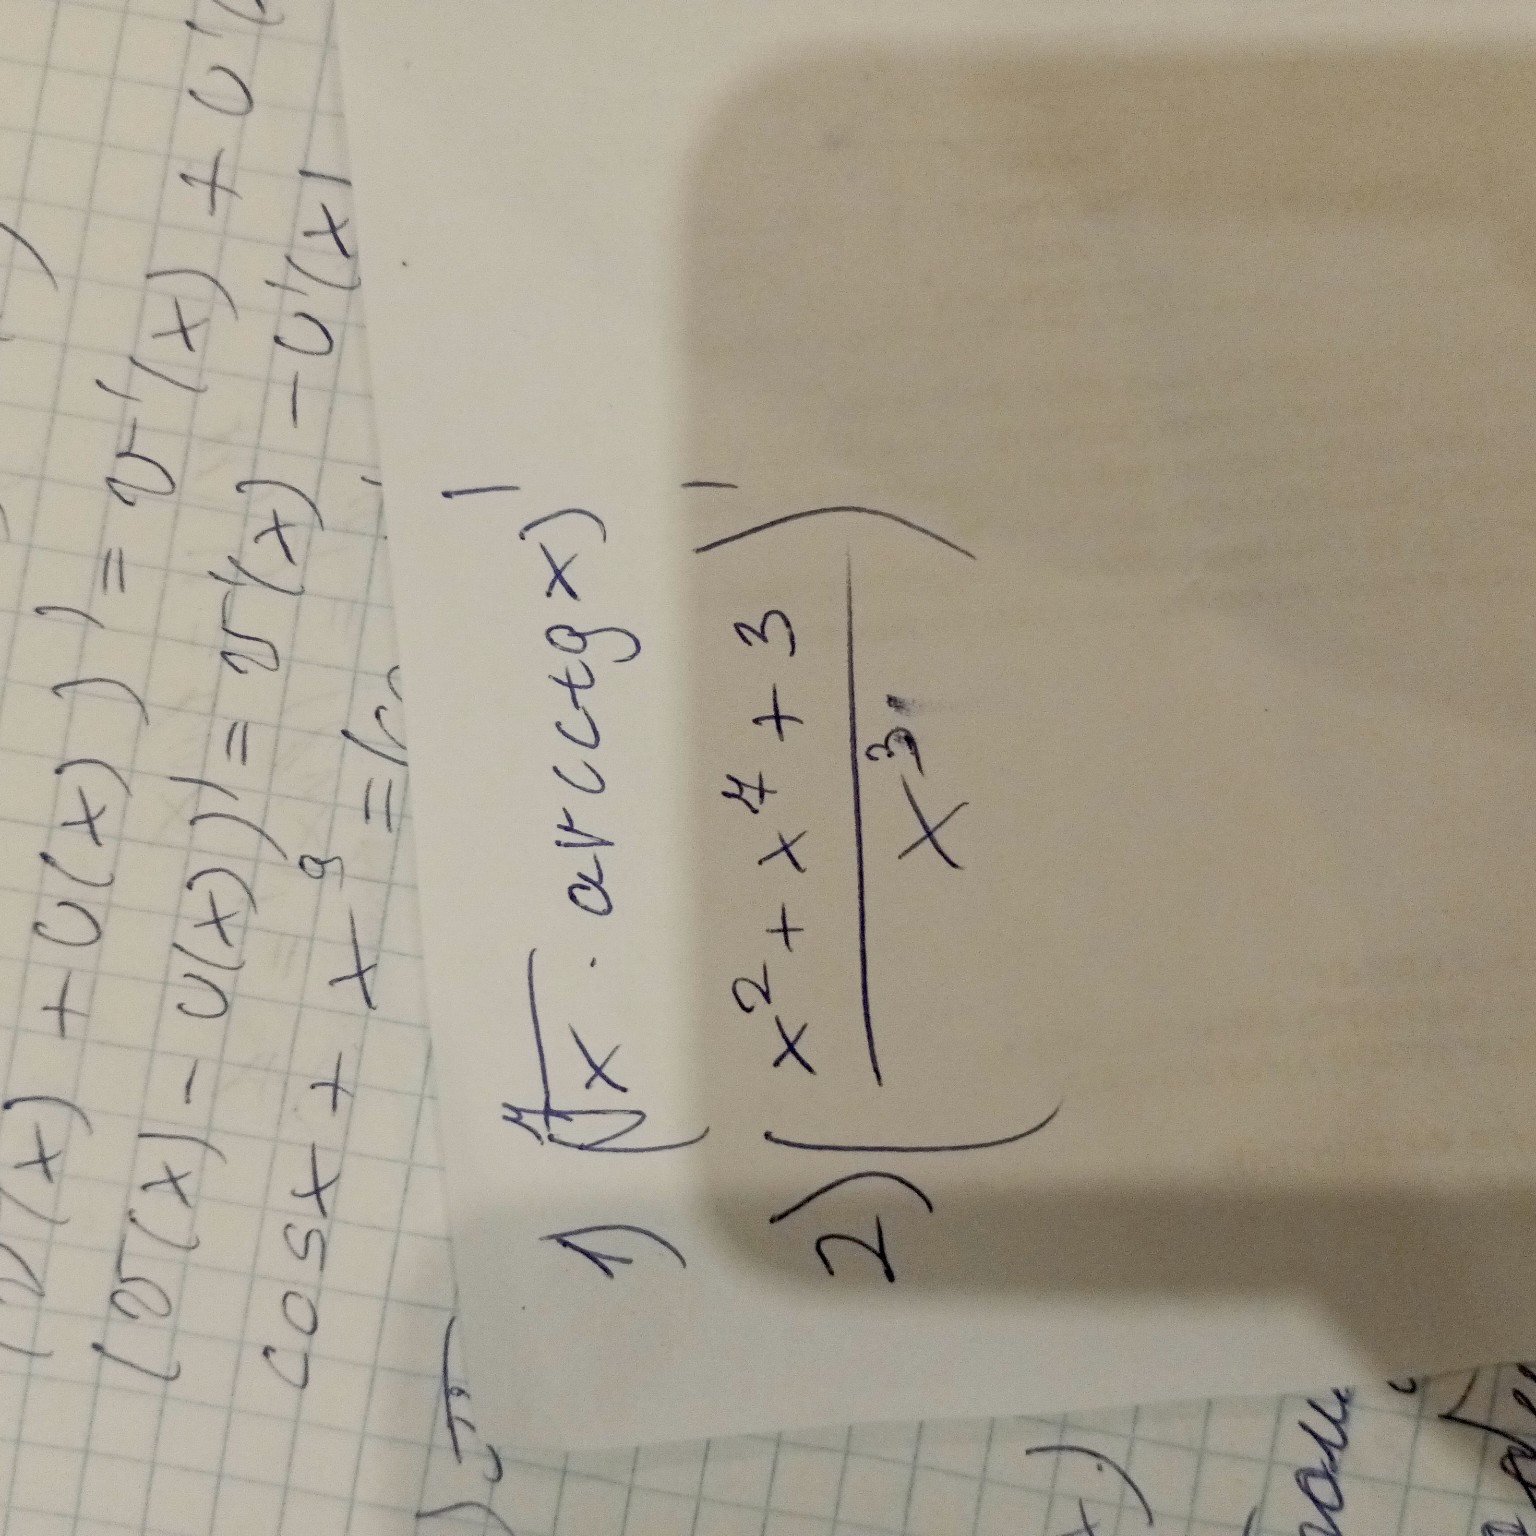 (v(x) + u(x))' = v'(x) + u'(
(v(x) - u(x))' = v'(x) - u'(x)
cosx + x⁹ =
1) (⁷√x · arcctgx)'
2) ((x² + x⁷ + 3)/x³)'